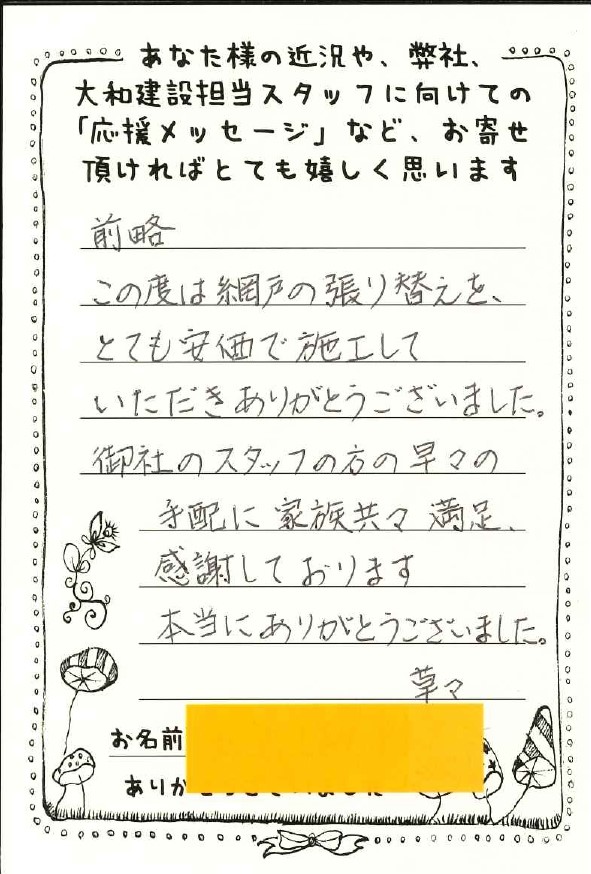 あなた様の近況や、弊社、
大和建設担当スタッフに向けての
「応援メッセージ」など、お寄せ
頂ければとても嬉しく思います
前略
この度は網戸の張り替えを、
とても安価で施工して
いただきありがとうございました。
御社のスタッフの方の早々の
手配に家族共々満足、
感謝しております
本当にありがとうございました。
草々
お名前